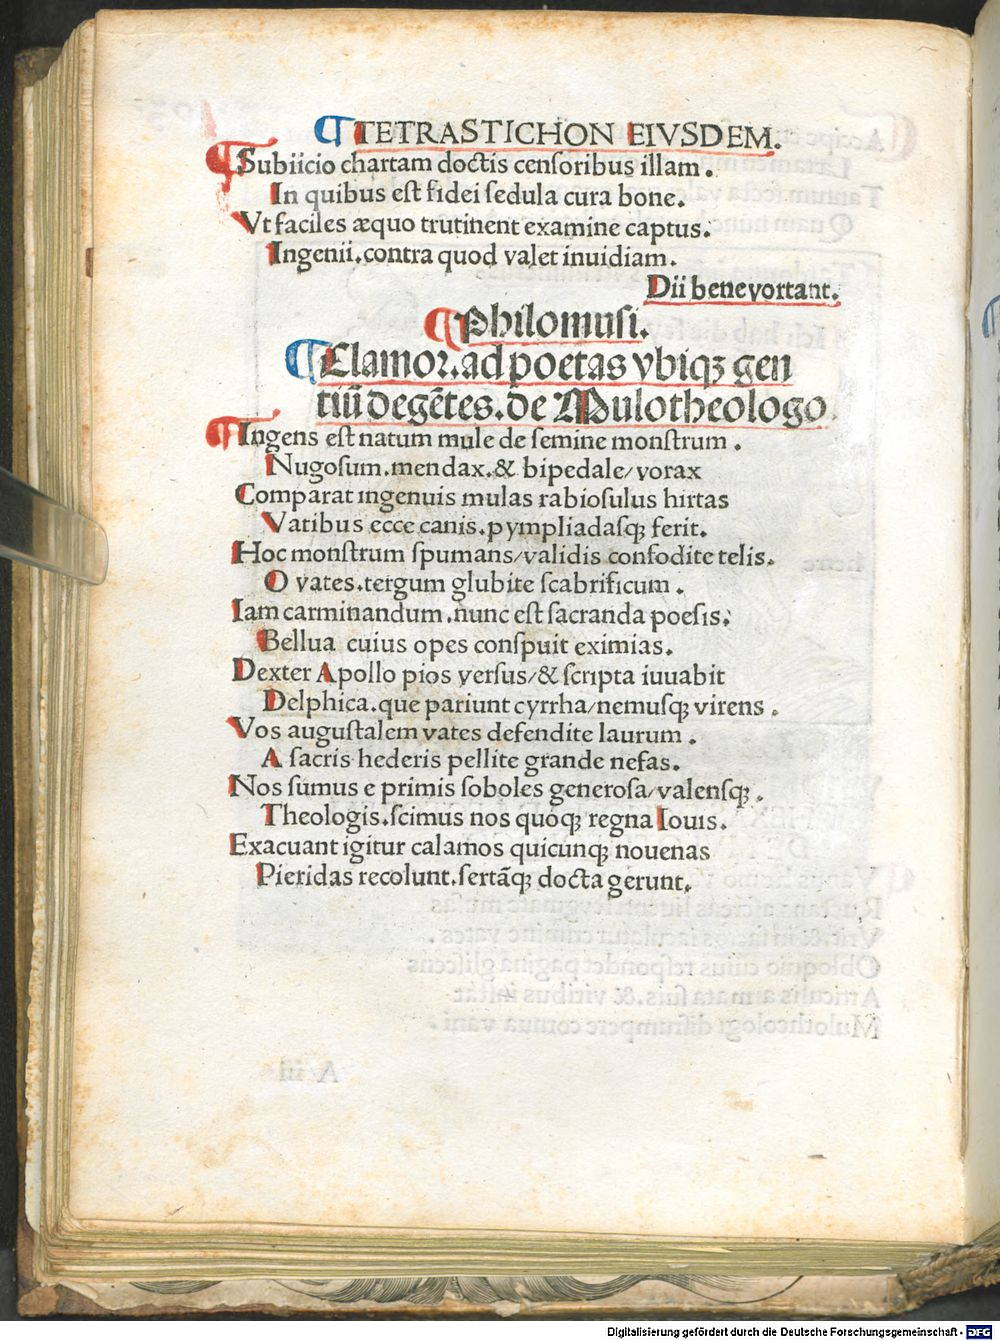 ¶ TETRASTICHON EIVSDEM.
¶ Subiicio chartam doctis censoribus illam.
In quibus est fidei sedula cura bone.
Vt faciles æquo trutinent examine captus:
Ingenii.contra quod valet inuidiam.
Dii bene vortant.
¶ Philomusi.
¶ Clamor.ad poetas vbiqꝫ gen
tiū degētes.de Mulotheologo.
¶ Ingens est natum mule de semine monstrum.
Nugosum.mendax.& bipedale/vorax
Comparat ingenuis mulas rabiosulus hirtas
Vatibus ecce canis.pympliadasqꝫ ferit.
Hoc monstrum spumans/validis confodite telis.
O vates.tergum glubite scabrificum.
Iam carminandum.nunc est sacranda poesis:
Bellua cuius opes conspuit eximias.
Dexter Apollo pios versus/& scripta iuuabit
Delphica.que pariunt cyrrha/nemusqꝫ virens.
Vos augustalem vates defendite laurum.
A sacris hederis pellite grande nefas.
Nos sumus e primis soboles generosa/valensqꝫ.
Theologis.scimus nos quoqꝫ regna Iouis.
Exacuant igitur calamos quicunqꝫ nouenas
Pieridas recolunt.sertāqꝫ docta gerunt.
Digitalisierung gefördert durch die Deutsche Forschungsgemeinschaft - DFG